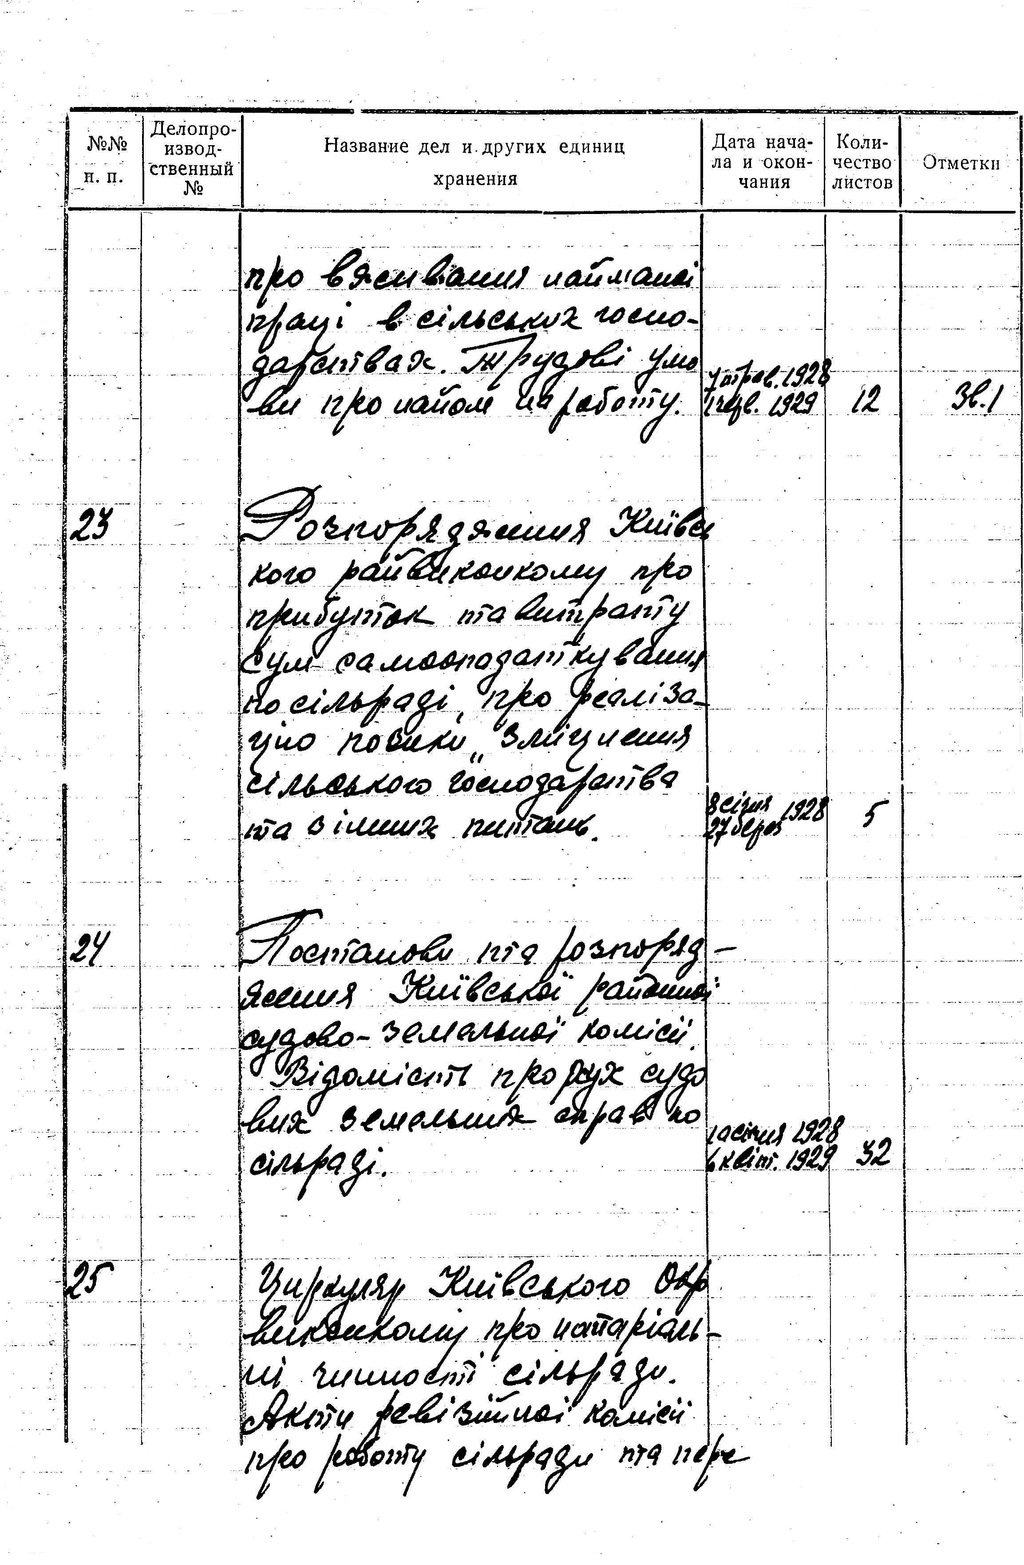 №№ н. п.
Делопро-
извод-
ственный
№
Название дел и других единиц
хранения
Дата нача-
ла и окон-
чания
Коли-
чество
листов
Отметки
про вживання найманої
праці в сільських госпо-
дарствах. Трудові умо
ви про найом на роботу.
7 трав. 1928
1 черв. 1929
12
Зв.1
23
Розпорядження Київсь
кого райвиконкому про
прибуток та витрату
сум самооподаткування
по сільраді, про реаліза-
цію позики „Зміцнення
сільського господарства
та з інших питань.
8 січня 1928
27 берез
5
24
Постанови та розпоряд-
ження Київської районної
судово-земельної комісії.
Відомість про рух судо
вих земельних справ по
сільраді.
10 січня 1928
6 квіт. 1929
32
25
Циркуляр Київського Окр
виконкому про натаріаль-
ні чинності сільради.
Акти ревізійної комісії
про роботу сільради та пере